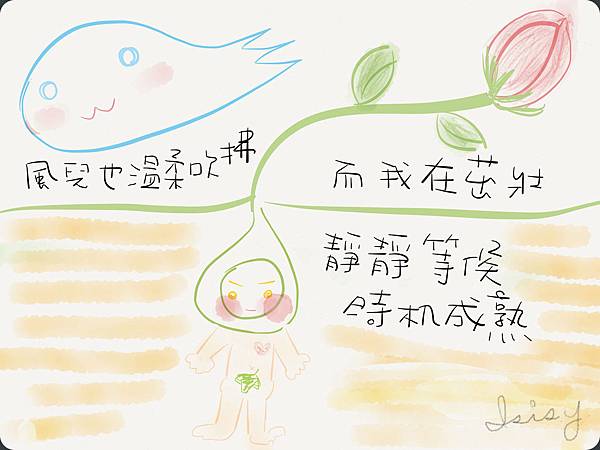 風兒也溫柔吹拂
而我在茁壯
靜靜等候
時机成熟
Isis.y